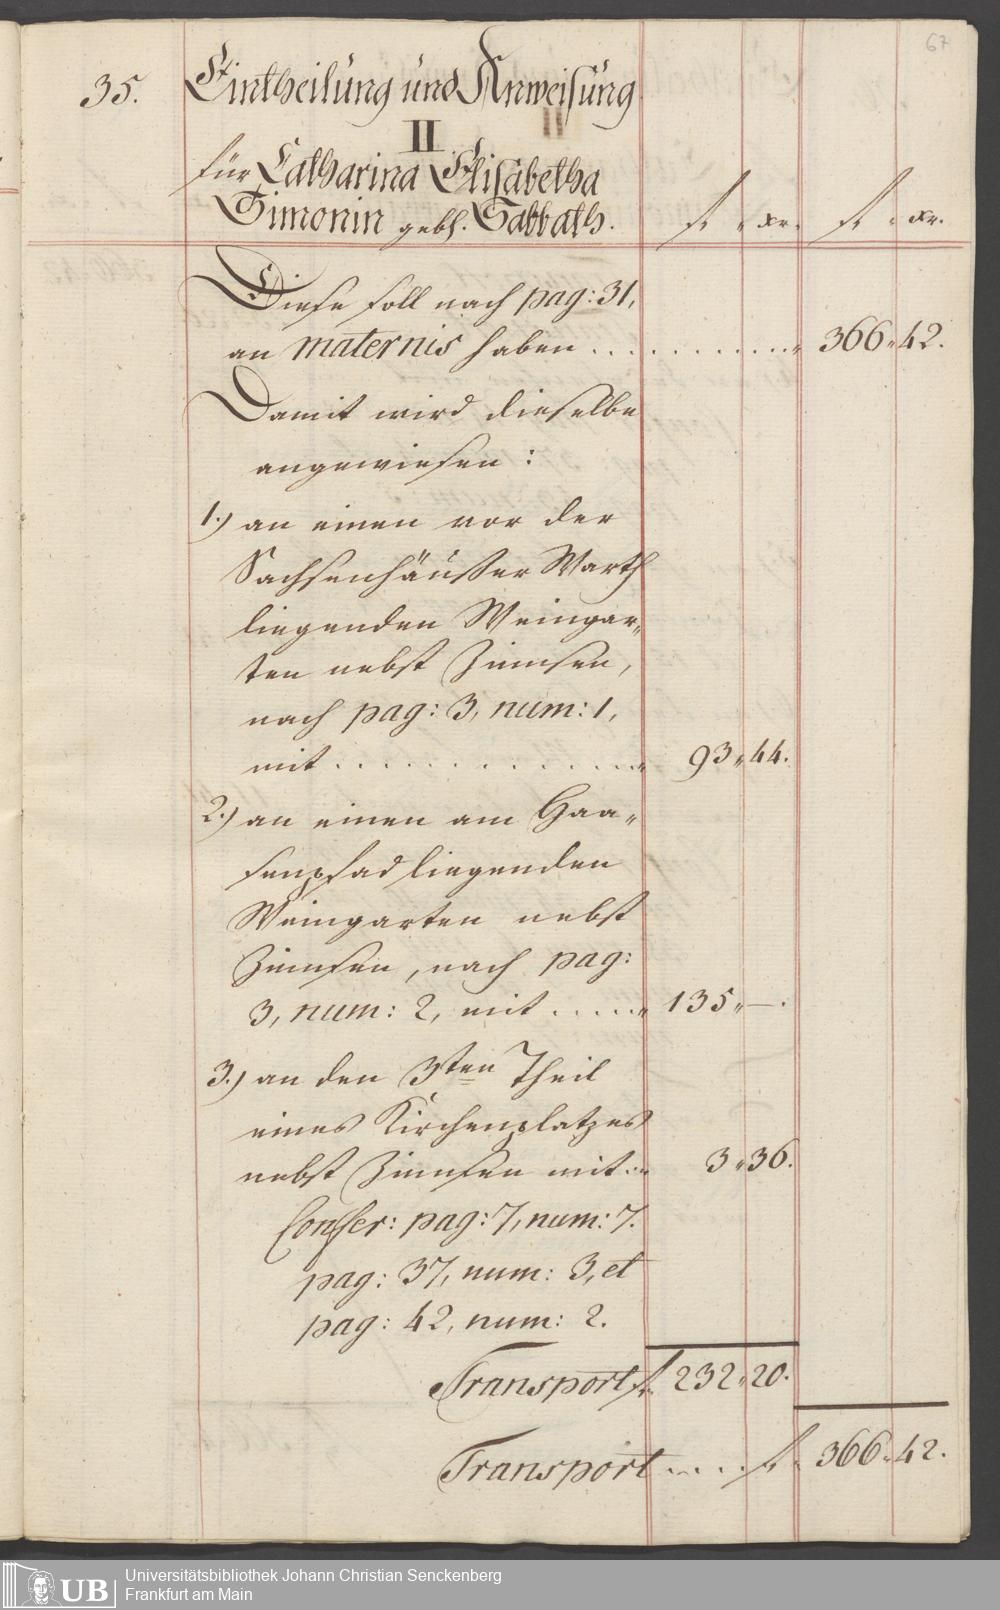 67
35. Eintheilung und Anweisung
II
für Catharina Elisabetha
Simonin gebh. Sabbath.
fl. " xr. fl. " xr.
Diese soll nach pag: 31,
an maternis haben . . . . . . . . . . . " 366 " 42.
Damit wird dieselbe
angewiesen :
1.) an einen vor der
Sachsenhäußer Warth
liegenden Weingar„
ten nebst Zinnsen,
nach pag: 3, num: 1,
mit . . . . . . . . . . . . . " 93 " 44.
2.) an einen am Haa„
senpfad liegenden
Weingarten nebst
Zinnsen, nach pag:
3, num: 2, mit . . . . . " 135 " —.
3.) an den 3ten Theil
eines Kirchenplatzes
nebst Zinnsen mit . . " 3 " 36.
Confer: pag: 7, num: 7.
pag: 37, num: 3, et
pag: 42, num: 2.
Transport fl. 232 " 20.
Transport . . . . . fl. " 366 " 42.
UB Universitätsbibliothek Johann Christian Senckenberg
Frankfurt am Main